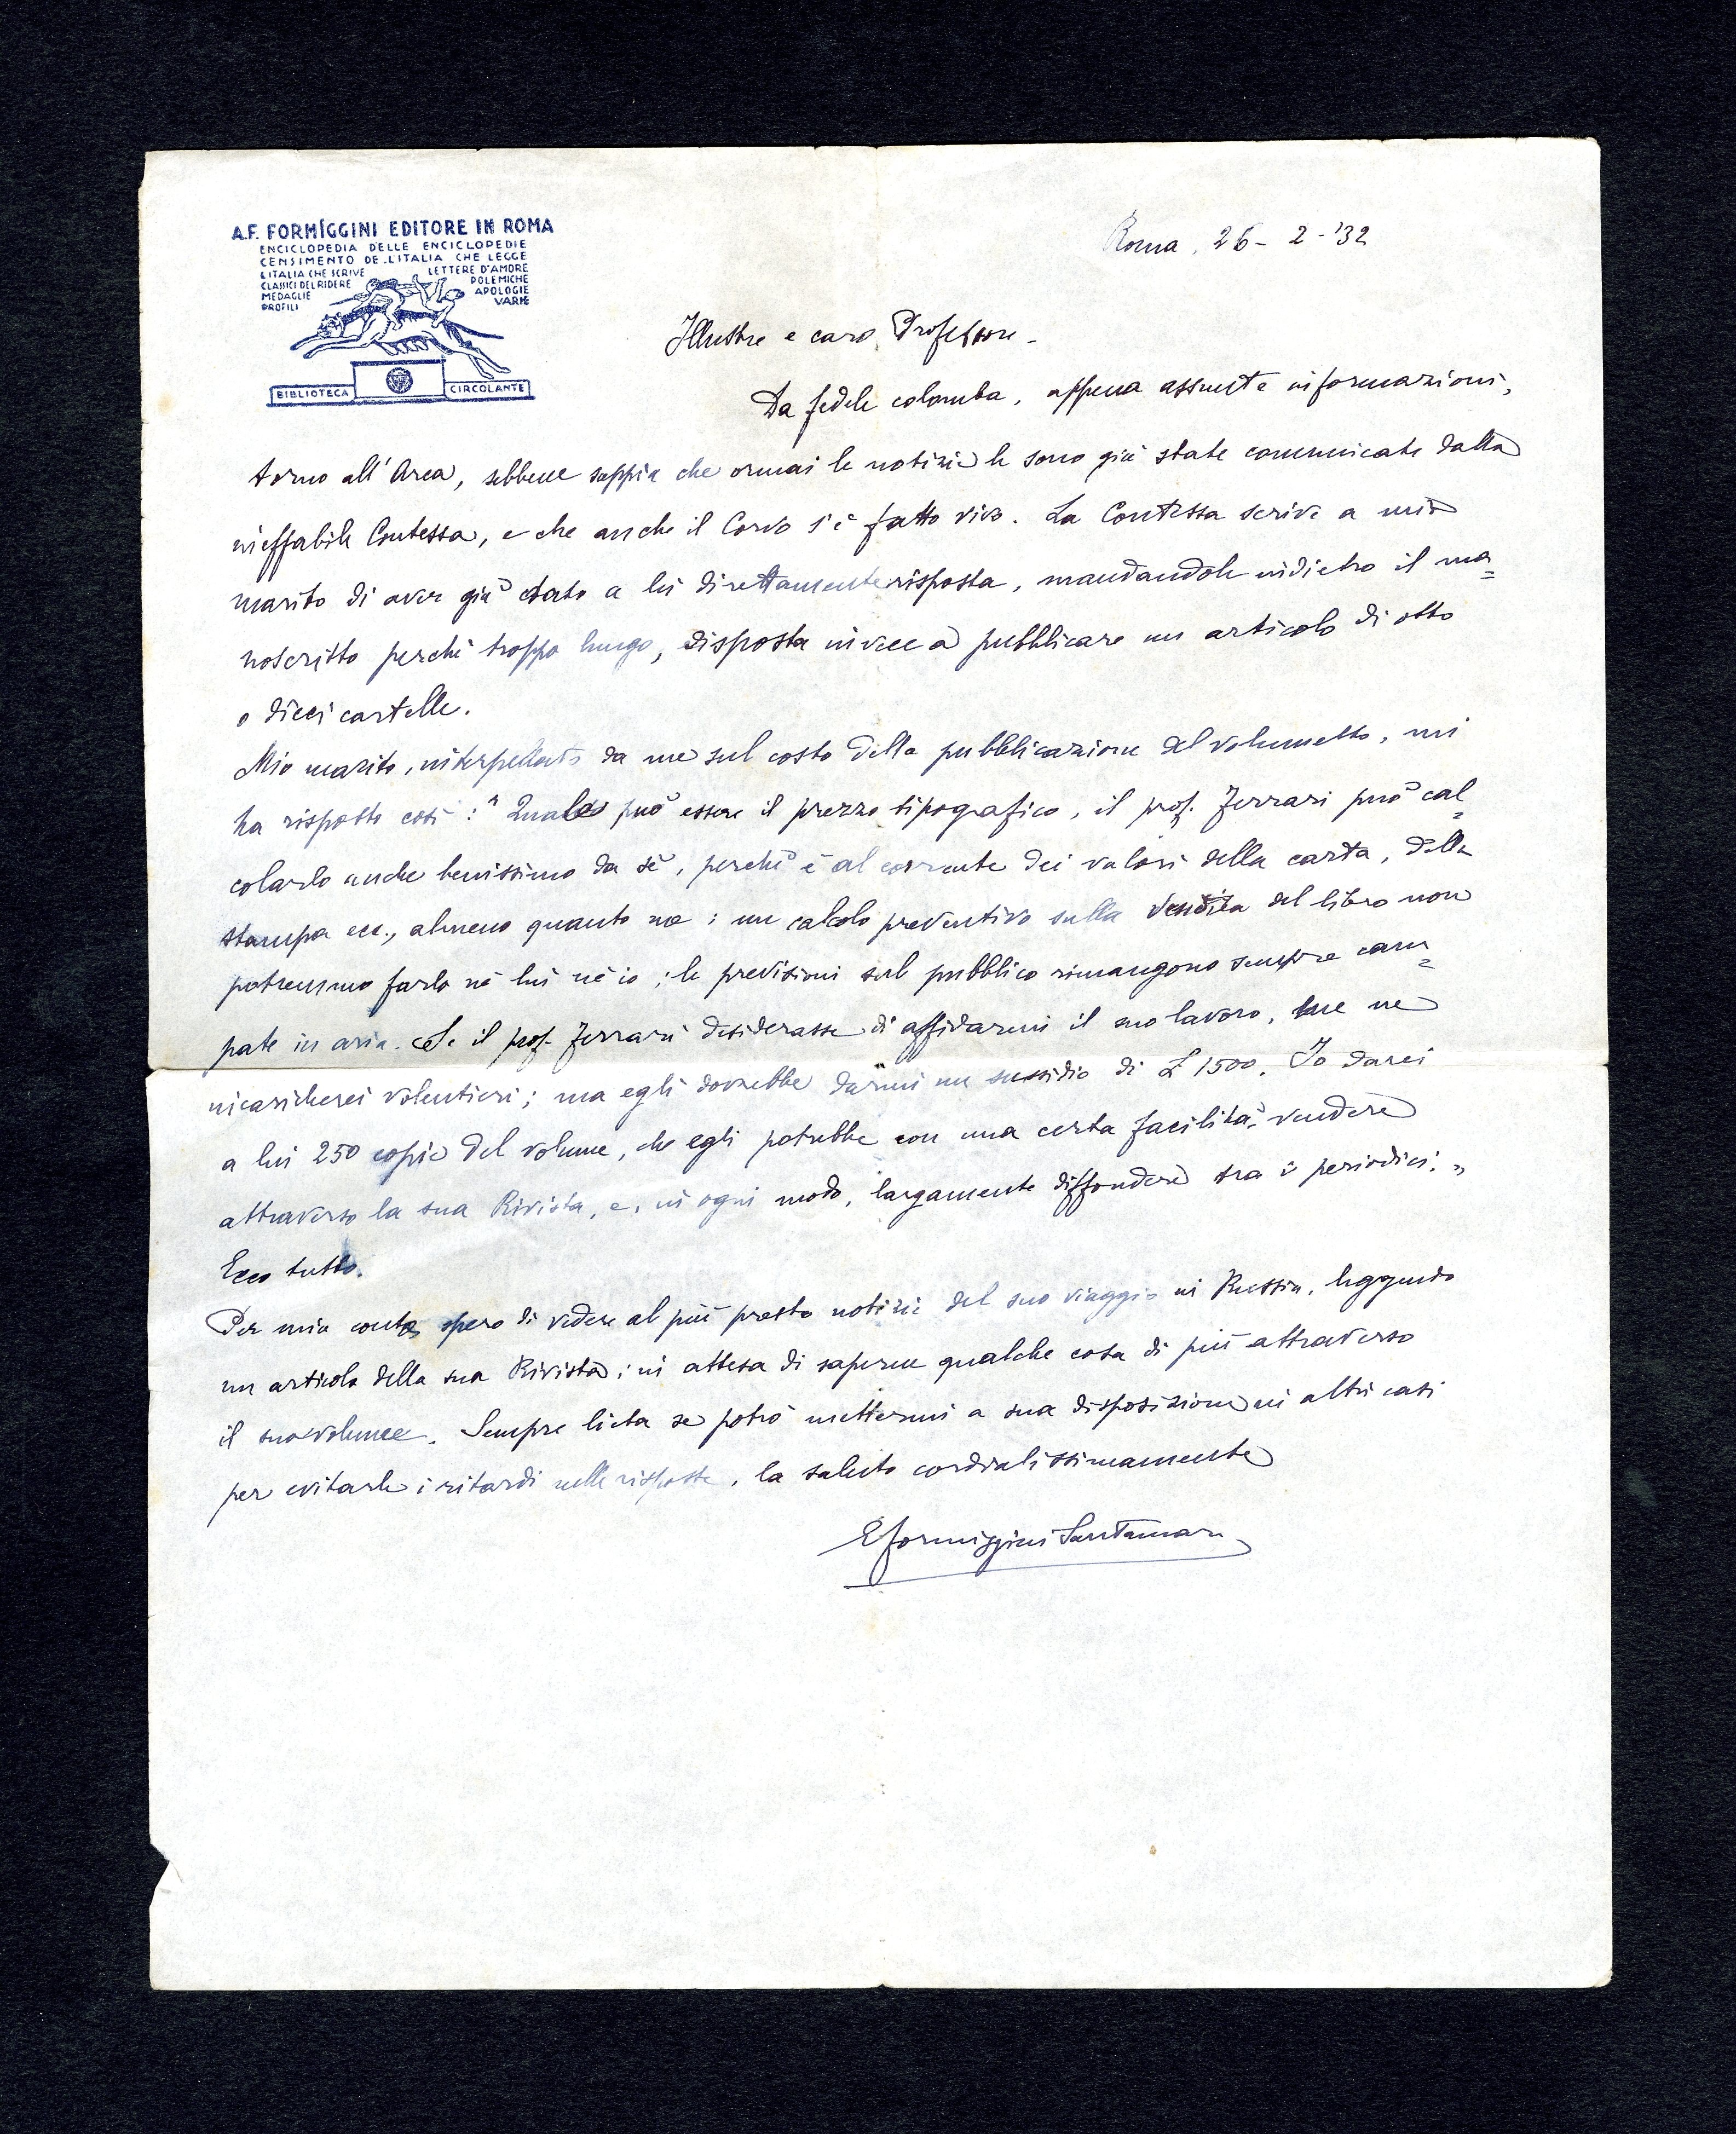 A.F. FORMÍGGINI EDITORE IN ROMA
ENCICLOPEDIA DELLE ENCICLOPEDIE
CENSIMENTO DE L'ITALIA CHE LEGGE
L'ITALIA CHE SCRIVE
CLASSICI DEL RIDERE
MEDAGLIE
PROFILI
LETTERE D'AMORE
POLEMICHE
APOLOGIE
VARIE
BIBLIOTECA CIRCOLANTE
Roma, 26 - 2 - '32
Illustre e caro Professore -
Da fedele colomba, appena assunte informazioni,
torno all'Arca, sebbene sappia che ormai le notizie le sono già state comunicate dalla
ineffabile Contessa, e che anche il Corvo s'è fatto vivo. La Contessa scrive a mio
marito di aver già dato a lei direttamente risposta, mandandole indietro il ma=
noscritto perchè troppo lungo, disposta invece a pubblicare un articolo di otto
o dieci cartelle.
Mio marito, interpellato da me sul costo della pubblicazione del volumetto, mi
ha risposto così: "Quale può essere il prezzo tipografico, il prof. Ferrari può cal=
colarlo anche benissimo da sè, perchè è al corrente dei valori della carta, della
stampa ecc., almeno quanto me: un calcolo preventivo sulla vendita del libro non
potremmo farlo nè lui nè io; le previsioni sul pubblico rimangono sempre cam=
pate in aria. Se il prof. Ferrari desiderasse di affidarmi il suo lavoro, me ne
incaricherei volentieri; ma egli dovrebbe darmi un sussidio di £ 1500. Io darei
a lui 250 copie del volume, che egli potrebbe con una certa facilità vendere
attraverso la sua Rivista, e, in ogni modo, largamente diffondere tra i periodici."
Ecco tutto.
Per mio conto spero di vedere al più presto notizie del suo viaggio in Russia, leggendo
un articolo della sua Rivista; in attesa di saperne qualche cosa di più attraverso
il suo volume. Sempre lieta se potrò mettermi a sua disposizione in altri casi
per evitarle i ritardi nelle risposte, la saluto cordialissimamente
E Formiggini Santamaria